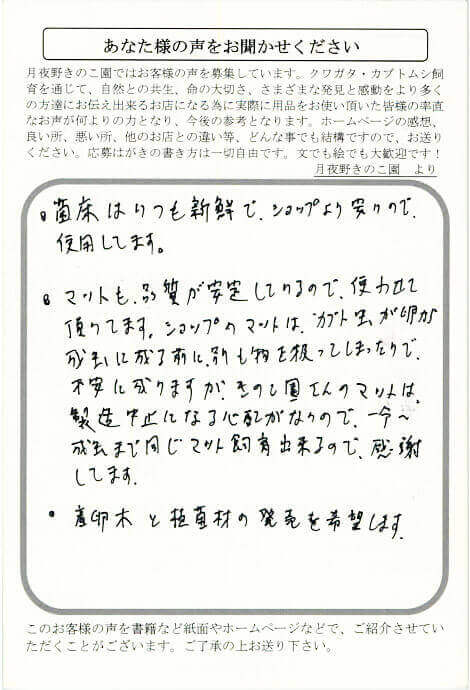 あなた様の声をお聞かせください
月夜野きのこ園ではお客様の声を募集しています。クワガタ・カブトムシ飼
育を通じて、自然との共生、命の大切さ、さまざまな発見と感動をより多く
の方達にお伝え出来るお店になる為に実際に用品をお使い頂いた皆様の率直
なお声が何よりの力となり、今後の参考となります。ホームページの感想、
良い所、悪い所、他のお店との違い等、どんな事でも結構ですので、お送り
ください。応募はがきの書き方は一切自由です。文でも絵でも大歓迎です！
月夜野きのこ園　より
菌床はいつも新鮮で、ショップより安いので、
使用してます。
マットも、品質が安定しているので、使わせて
頂いてます。ショップのマットは、カブト虫が卵が
成虫に成る前に、別も物を扱ってしまったりで、
不安に成りますが、きのこ園さんのマットは、
製造中止になる心配がないので、
成虫まで同じマット飼育出来るので、感謝
してます。
・産卵木と植菌材の発売を希望します。
このお客様の声を書籍など紙面やホームページなどで、ご紹介させてい
ただくことがございます。ご了承の上お送り下さい。